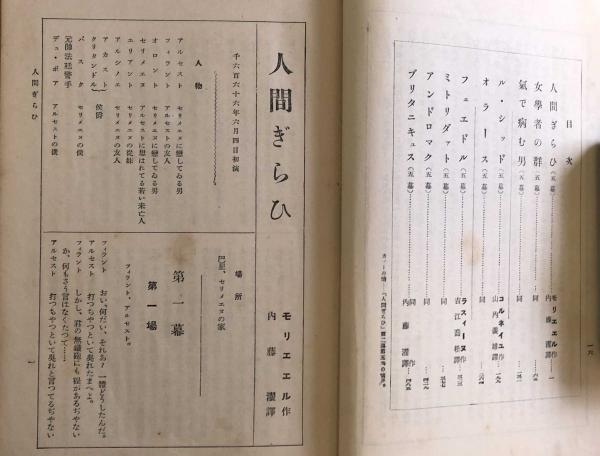 目次
人間ぎらひ(五幕)
モリエエル作
内藤濯譯
一
女學者の群(五幕)
同
氣で病む男(五幕)
同
ル・シッド(五幕)
コルネイユ作
山内義雄譯
オラース(五幕)
同
フェエドル(五幕)
ラスィーヌ作
吉江喬松譯
ミトリダット(五幕)
同
アンドロマク(五幕)
同
ブリタニキュス(五幕)
同作
内藤濯譯
人間ぎらひ
モリエエル作
内藤濯譯
千六百六十六年六月四日初演
人物
アルセスト セリメエヌに戀してゐる男
フィラント アルセストの友人
オロント セリメエヌに戀してゐる男
セリメエヌ アルセストに思はれてる若い未亡人
エリアント セリメエヌの從妹
アルシノエ セリメエヌの友人
アカスト
クリタンドル
侯爵
バスク セリメエヌの僕
元帥法廷警手
デュ・ボア アルセストの僕
場所
巴里、セリメエヌの家
第一幕
第一場
フィラント、アルセスト。
フィラント おい、何だい、それあ? 一體どうしたんだ。
アルセスト 打つちやつといて吳れたまへよ。
フィラント しかし、君の無鐵砲にも程があるぢやない
か、何もさう言はなくたつて……
アルセスト 打つちやつといて吳れと言つてるぢやない
人間ぎらひ
一